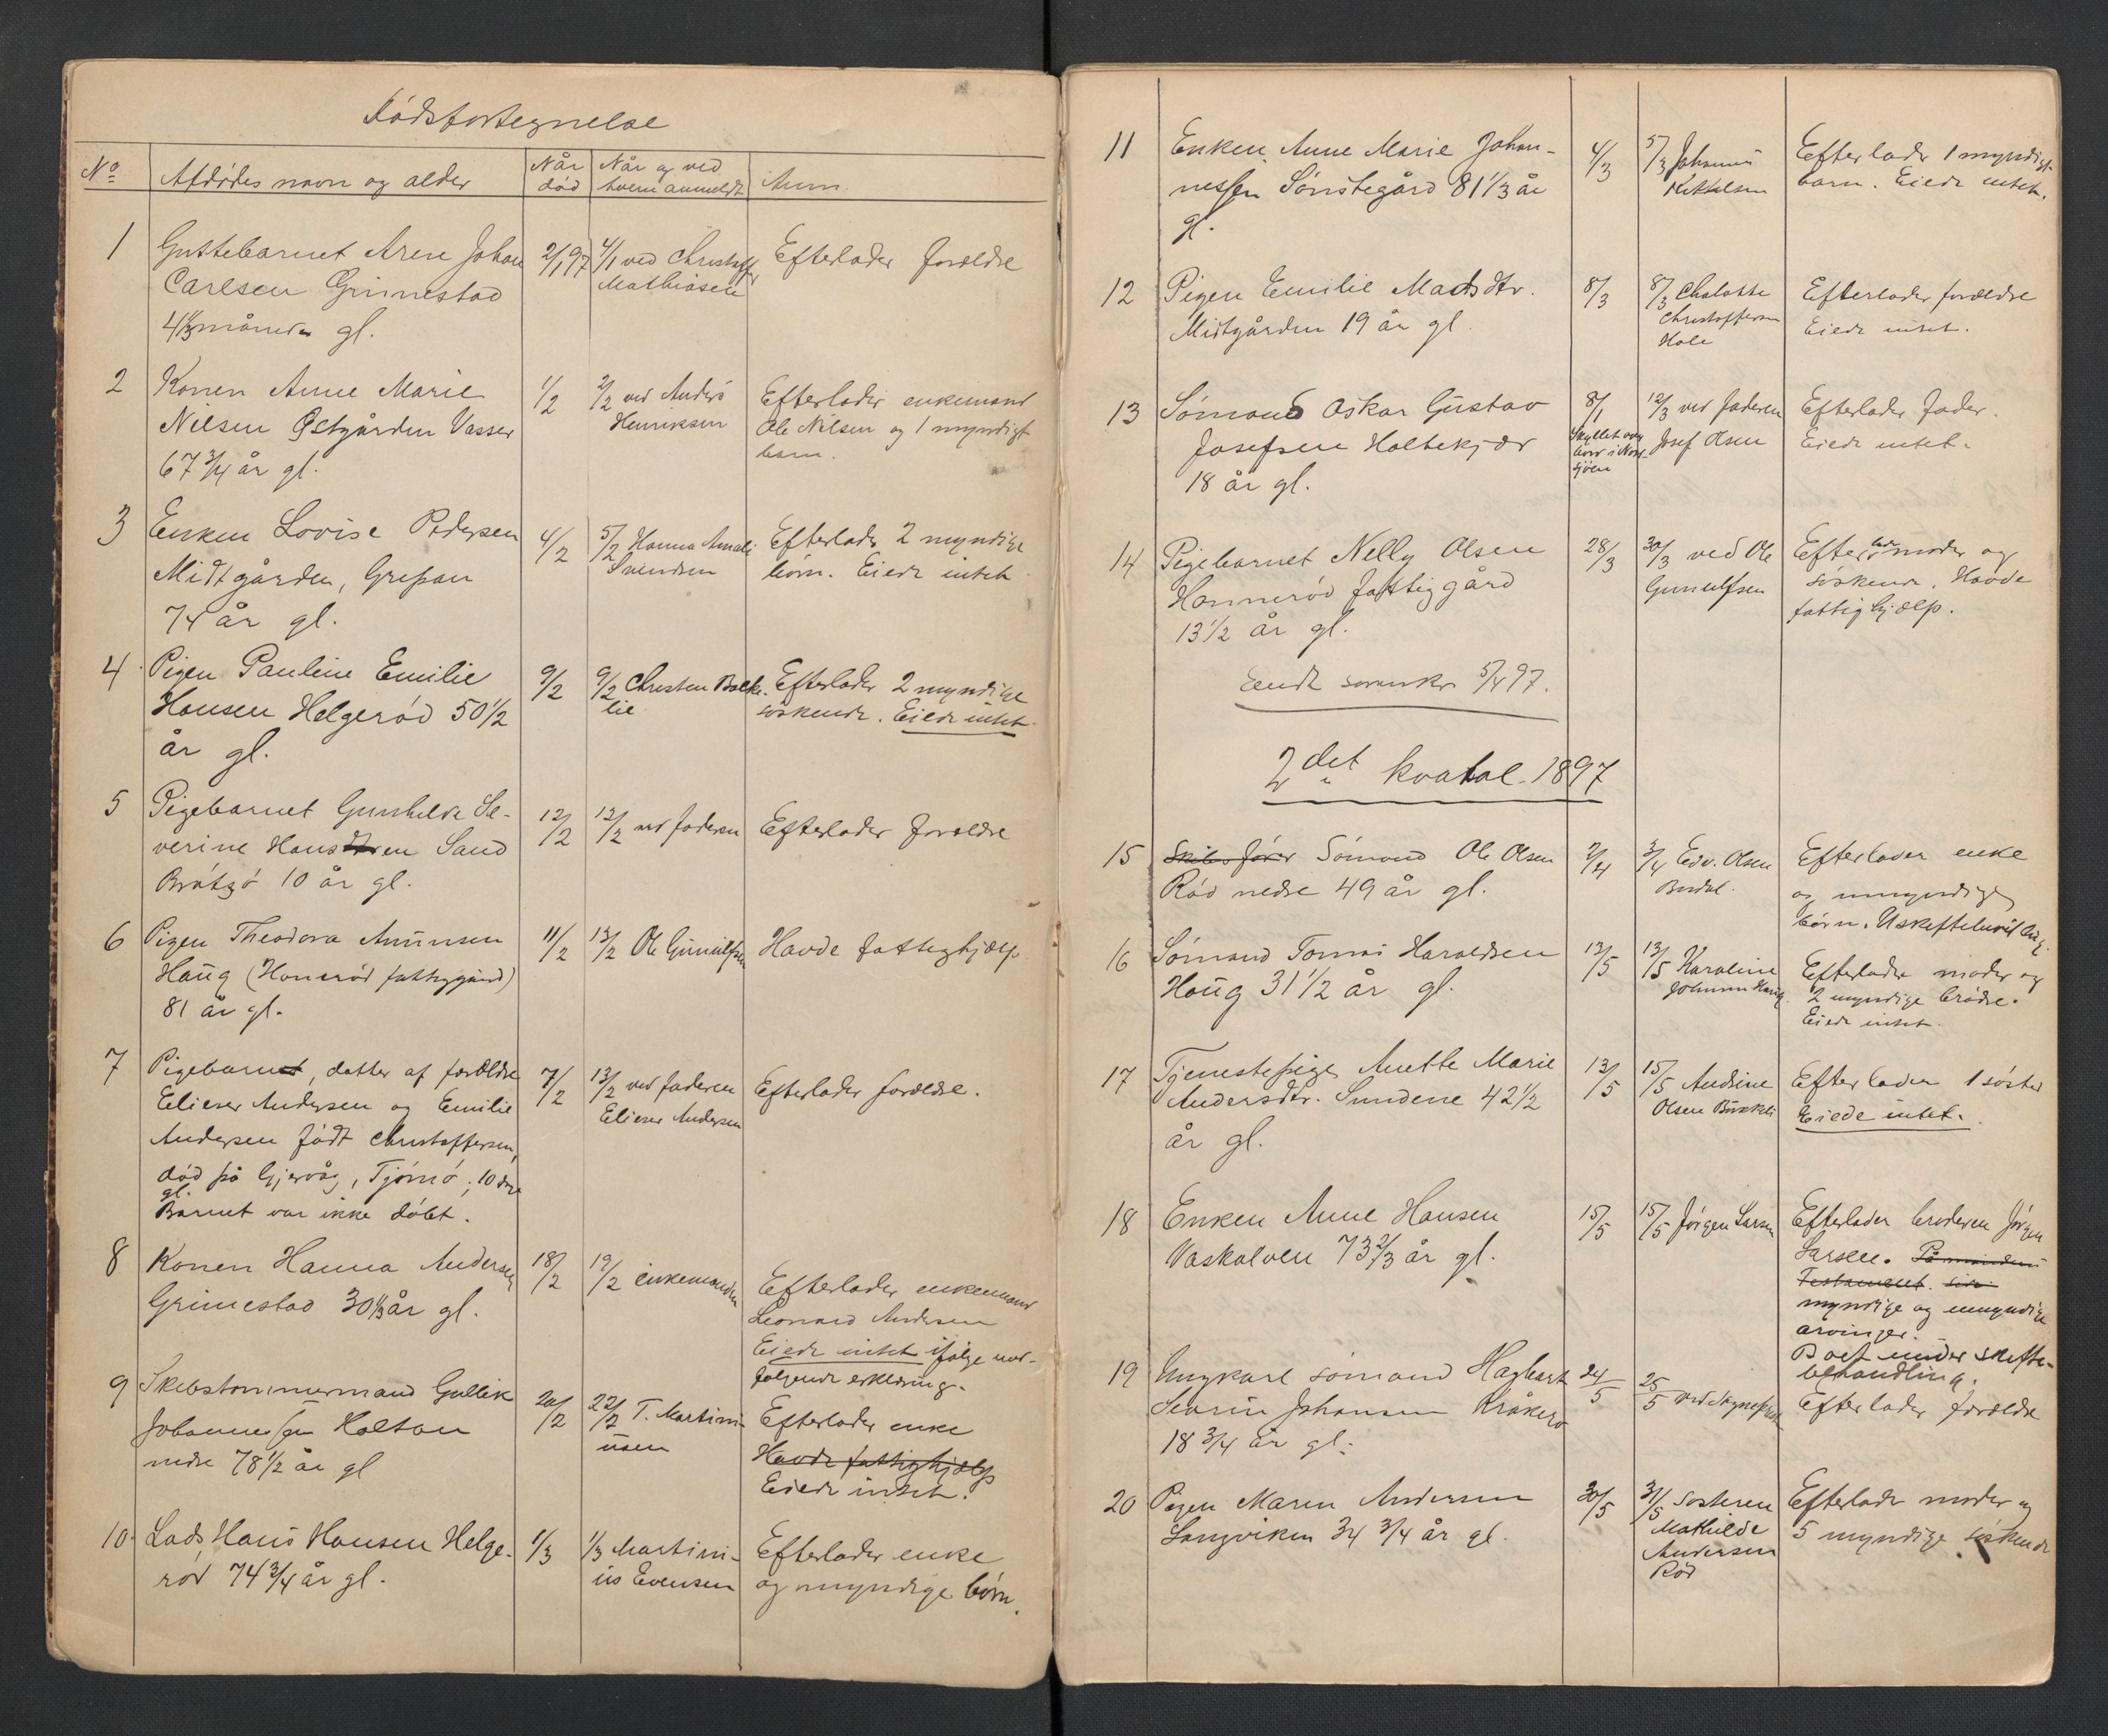 Dødsfortegnelse
No Afdødes navn og alder Når død Når og ved hvem anmeldt Anm.
1 Guttebarnet Arne Johan 2/1 97 4/1 ved Christoffer Efterlader forældre
Carlsen Grimestad Mathiasen
4 1/3 måneder gl.
2 Konen Anne Marie 1/2 2/2 ved Anders Efterlader enkemand
Nilsen Østgården Vasser Henriksen Ole Nilsen og 1 myndigt
67 3/4 år gl. barn.
3 Enken Lovise Pedersen 4/2 5/2 Hanna Amali Efterlader 2 myndige
Midtgården, Grepan Svendsen børn. Eiede intet
74 år gl.
4 Pigen Pauline Emilie 9/2 9/2 Christen Bække- Efterlader 2 myndige
Hansen Helgerød 50 1/2 lie søskende. Eiede intet
år gl.
5 Pigebarnet Gunhilde Se- 12/2 12/2 ved faderen Efterlader forældre
verine Hansen Sand
Brøtsø 10 år gl.
6 Pigen Theodora Amunsen 11/2 13/2 Ole Gunulfsen Havde fattighjælp
Haug (Honerød fattiggård)
81 år gl.
7 Pigebarnet, datter af forældre 7/2 13/2 ved faderen Efterlader forældre.
Elieser Andersen og Emilie Elieser Andersen
Andersen født Christoffersen,
død på Gjervåg, Tjømø, 10 dage
gl.
Barnet var ikke døbt.
8 Konen Hanna Andersen 18/2 19/2 enkemanden Efterlader enkemand
Grimestad 30 1/3 år gl. Leonard Andersen
Eiede intet ifølge ved-
følgende erklæring.
9 Skibstømmermand Gullik 20/2 22/2 T. Martini- Efterlader enke
Johannessen Holtan usen Havde fattighjælp
nedre 78 1/2 år gl Eiede intet.
10 Lods Hans Hansen Helge- 1/3 1/3 Martini- Efterlader enke
rød 74 3/4 år gl. us Evensen og myndige børn.
11 Enken Anne Marie Johan- 4/3 5/3 Johannes Efterlader 1 myndigt
nessen Sønstegård 81 1/3 år Kittelsen barn. Eiede intet.
gl.
12 Pigen Emilie Madsdtr. 8/3 8/3 Chalotte Efterlader forældre
Midtgården 19 år gl. Christoffersen Eiede intet.
Hole
13 Sømand Oskar Gustav 8/1 12/3 ved faderen Efterlader fader
Josefsen Holtekjær Skyllet over Josef Olsen Eiede intet.
18 år gl. bord i Nord-
sjøen
14 Pigebarnet Nelly Olsen 28/3 30/3 ved Ole Efterlader moder og
Honnerød fattiggård Gunulfsen søskende. Havde
13 1/2 år gl. fattighjælp.
Sendt sorenskr 5/4 97.
2det kvatal 1897
15 Skibsfører Sømand Ole Olsen 2/4 3/4 Edv. Olsen Efterlader enke
Rød nedre 49 år gl. Budal. og umyndige
børn.
16 Sømand Tomas Haraldsen 13/5 13/5 Karoline Efterlader moder og
Haug 31 1/2 år gl. Johansen Haug 2 myndige brødre.
Eiede intet.
17 Tjenestepige Anette Marie 13/5 15/5 Andrine Efterlader 1 søster
Andersdtr. Sundene 42 1/2 Olsen Eiede intet.
år gl.
18 Enken Anne Hansen 15/5 15/5 Jørgen Larsen Efterlader broderen Jørgen
Vaskalven 73 2/3 år gl. Larsen.
Testament.
myndige og umyndige
arvinger.
Boet under skifte-
behandling.
19 Ungkarl sømand Hagbart 24/5 25/5 ved Efterlader forældre
Severin Johansen Kråkerø
18 3/4 år gl.
20 Pigen Maren Andersen 30/5 31/5 søsteren Efterlader moder og
Langviken 34 3/4 år gl. Mathilde 5 myndige søskende
Andersen
Rød